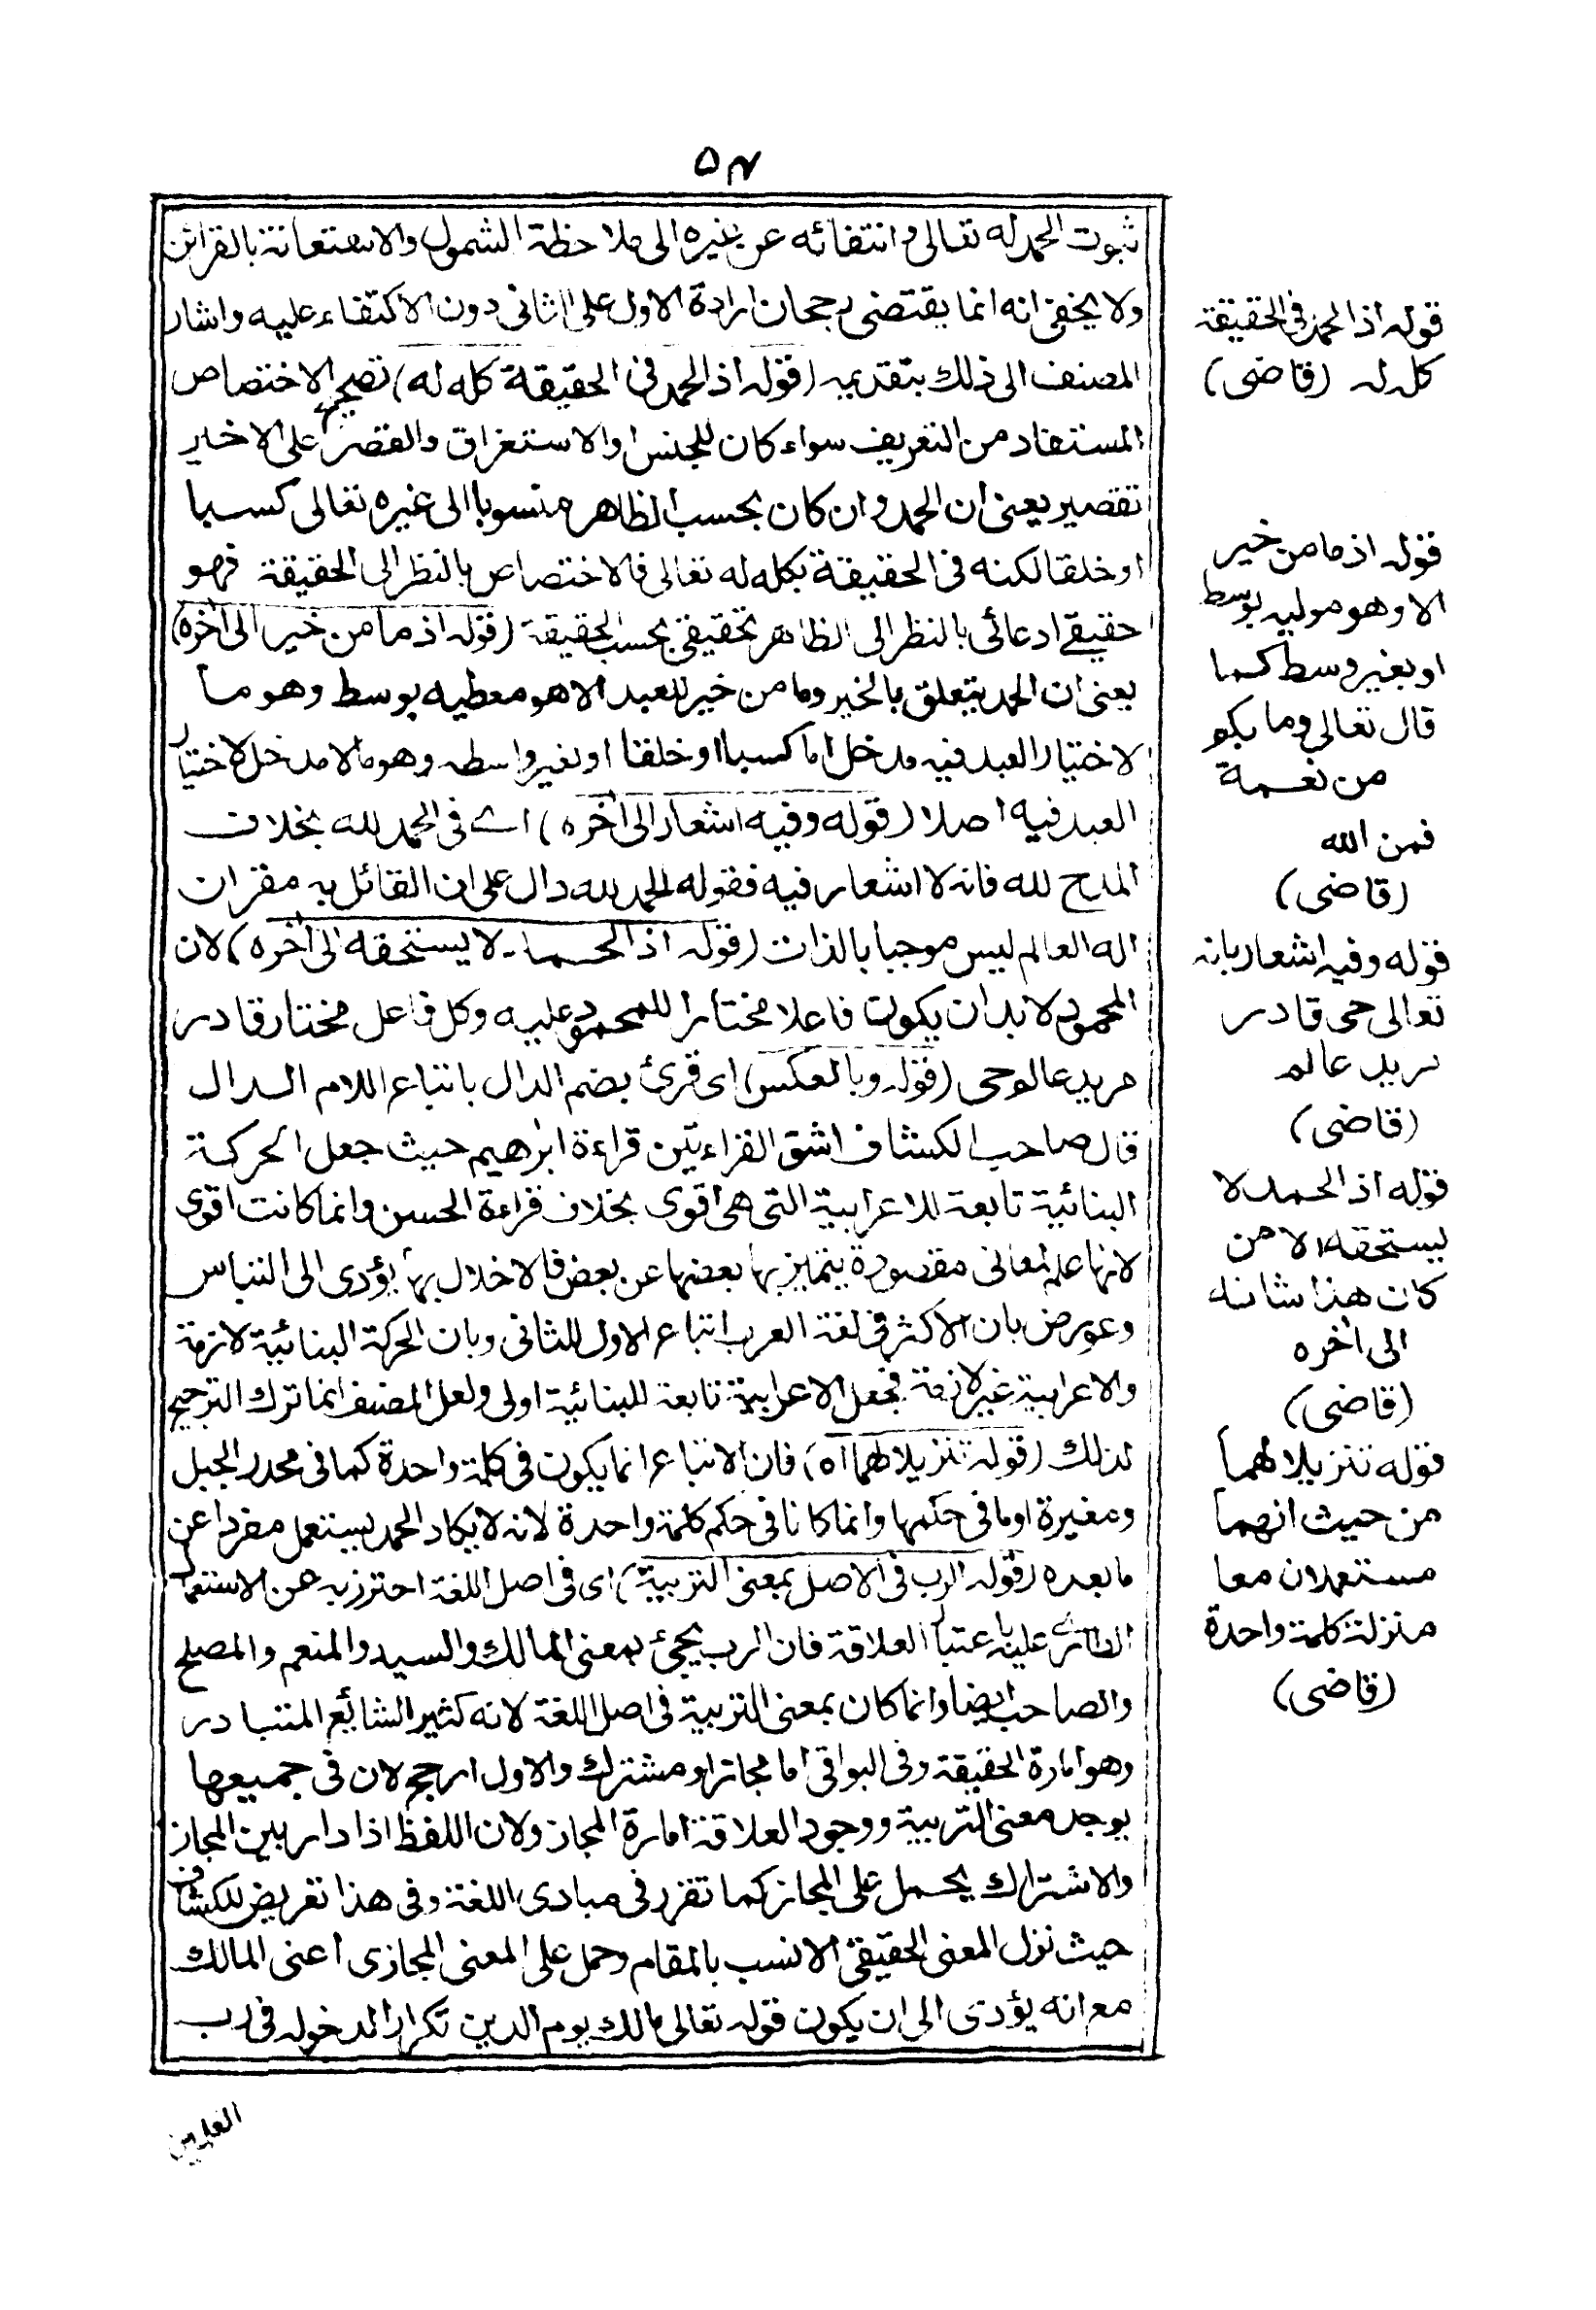 ٥٣
ثبوت الحمد له تعالى وانتفائه عن غيره الى ملاحظة الشمول والاستعانة بالقرائن
ولا يخفى انه انما يقتضى رجحان ارادة الاول على الثانى دون الاكتفاء عليه واشار
المصنف الى ذلك بتقديمه (قوله اذ الحمد فى الحقيقة كله له) تصحيح الاختصاص
المستفاد من التعريف سواء كان للجنس او الاستغراق والقصر على الاخير
تقصير يعنى ان الحمد وان كان بحسب الظاهر منسوبا الى غيره تعالى كسبا
او خلقا لكنه فى الحقيقة كله له تعالى فالاختصاص بالنظر الى الحقيقة فهو
حقيقے ادعائى بالنظر الى الظاهر تحقيقى بحسب الحقيقة (قوله اذ ما من خير الى اخره)
يعنى ان الحمد يتعلق بالخير وما من خير للعبد الا هو معطيه بوسط وهو ما
لاختيار العبد فيه مدخل اما كسبا او خلقا او بغير واسطه وهو ما لا مدخل لاختيار
العبد فيه اصلا (قوله وفيه اشعار الى اخره) اے فى الحمد لله بخلاف
المدح لله فانه لا اشعار فيه فقوله الحمد لله دال على ان القائل به مقر ان
اله العالم ليس موجبا بالذات (قوله اذ الحمد لا يستحقه الى اخره) لان
المحمود لا بد ان يكون فاعلا مختارا للمحمود عليه وكل فاعل مختار قادر
مريد عالم وحى (قوله وبالعكس) اى قرئ بضم الدال باتباع اللام الدال
قال صاحب الكشاف اشق القراءتين قراءة ابرهيم حيث جعل الحركة
البنائية تابعة للاعرابية التى هى اقوى بخلاف قراءة الحسن وانما كانت اقوى
لانها علم لمعانى مقصودة يتميز بها بعضها عن بعض فالاخلال بها يؤدى الى التباس
وعورض بان الاكثر فى لغة العرب اتباع الاول للثانى وبان الحركة البنائية لازمة
والاعرابية غير لازمة فجعل الاعرابية تابعة للبنائية اولى ولعل المصنف انما ترك الترجيح
لذلك (قوله تنزيلا لهما اه) فان الاتباع انما يكون فى كلمة واحدة كما فى محدر الجبل
ومغيرة او ما فى حكمها وانما كانا فى حكم كلمة واحدة لانه لا يكاد الحمد يستعمل مفردا عن
ما بعده (قوله الرب فى الاصل بمعنى التربية) اى فى اصل اللغة احترز به عن الاستعمال
الطارى عليه باعتبار العلاقة فان الرب يجئ بمعنى المالك والسيد والمنعم والمصلح
والصاحب ايضا وانما كان بمعنى التربية فى اصل اللغة لانه كثير الشائع المتبادر
وهو امارة الحقيقة وفى البواقى اما مجاز او مشترك والاول ارجح لان فى جميعها
يوجد معنى التربية ووجود العلاقة امارة المجاز ولان اللفظ اذا دار بين المجاز
والاشتراك يحمل على المجاز كما تقرر فى مبادى اللغة وفى هذا تعريض للكشاف
حيث نزل المعنى الحقيقى الانسب بالمقام وحمل على المعنى المجازى اعنى المالك
مع انه يؤدى الى ان يكون قوله تعالى مالك يوم الدين تكرارا لدخوله فى رب
العلمين
قوله اذ الحمد فى الحقيقة
كله له (قاضى)
قوله اذ ما من خير
الا وهو موليه بوسط
او بغير وسط كما
قال تعالى وما بكم
من نعمة
فمن الله
(قاضى)
قوله وفيه اشعار بانه
تعالى حى قادر
مريد عالم
(قاضى)
قوله اذ الحمد لا
يستحقه الا من
كان هذا شانه
الى اخره
(قاضى)
قوله تنزيلا لهما
من حيث انهما
مستعملان معا
منزلة كلمة واحدة
(قاضى)